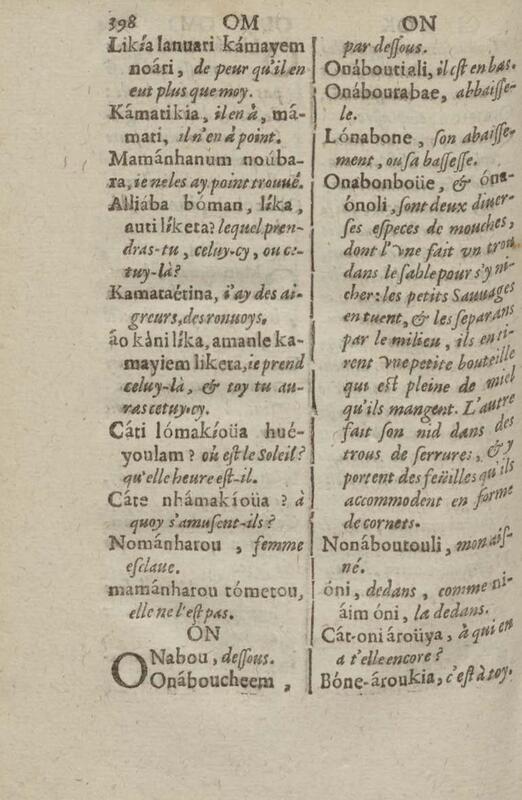 398 OM ON
Likía Ianuari kámayem
noári, de peur qu'il en
eut plus que moy.
Kámatikia, il en à, má-
mati, il n'en à point.
Mamánhanum noúba-
ra, ie ne les ay point trouué.
Alliába bóman, líka,
auti líketa? lequel pren-
dras-tu, celuy-cy, ou ce-
tuy-là?
Kamataétina, i'ay des ai-
greurs, des ronuoys.
áo káni líka, amanle ka-
mayiem liketa, ie prend
celuy-là, & toy tu au-
ras cetuy-cy.
Cáti lómakíoüa hué-
youlam? où est le Soleil?
qu'elle heure est-il.
Cáte nhámakíoüa ? à
quoy s'amusent-ils?
Nománharou , femme
esclaue.
mamánharou tómetou,
elle ne l'est pas.
ON
ONabou, dessous.
Onáboucheem ,
par dessous.
Onáboutiali, il est en bas.
Onábourabae, abbaisse-
le.
Lónabone , son abaisse-
ment, ou sa bassesse.
Onabonboüe, & óna-
ónoli, sont deux diuer-
ses especes de mouches,
dont l'vne fait vn trou
dans le sable pour s'y ni-
cher: les petits Sauuages
en tuent, & les separans
par le milieu, ils en ti-
rent vne petite bouteille
qui est pleine de miel
qu'ils mangent. L'autre
fait son nid dans des
trous de serrures, & y
portent des feüilles qu'ils
accommodent en forme
de cornets.
Nonáboutouli, mon ais-
né.
óni, dedans , comme ni-
áim óni, la dedans.
Cát-oni ároüya, à qui en
a t'elle encore?
Bóne-ároukia, c'est à toy.